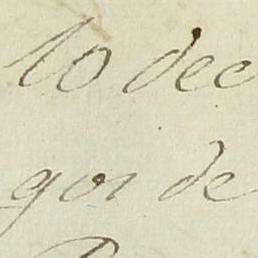 lo dec
gor de